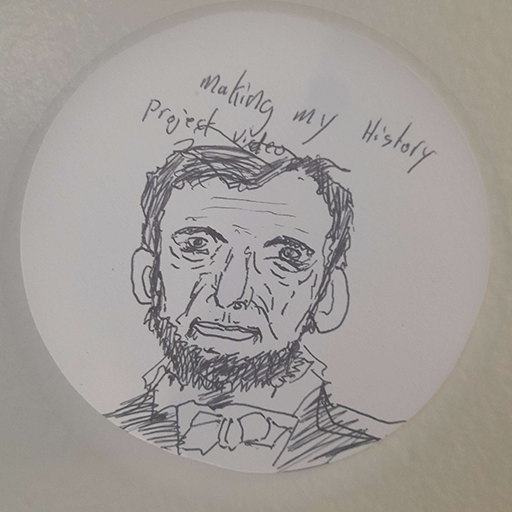 making my History
Project video